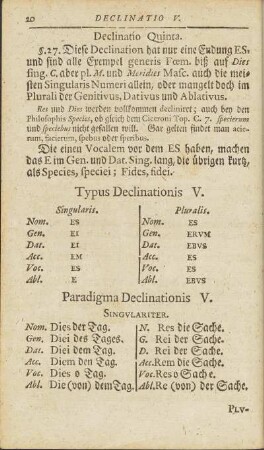 20 DECLINATIO V.
Declinatio Quinta.
§.27. Diese Declination hat nur eine Endung ES,
und sind alle Exempel generis Fœm. biß auf Dies
sing. C. aber pl. M. und Meridies Masc. auch die mei-
sten Singularis Numeri allein, oder mangelt doch im
Plurali der Genitivus, Dativus und Ablativus.
Res und Dies werden vollkommen declinirt; auch bey den
Philosophis Species, ob gleich dem Ciceroni Top. C. 7. specierum
und speciebus nicht gefallen will. Gar selten findet man acie-
rum, facierum, spebus oder speribus.
Die einen Vocalem vor dem ES haben, machen
das E im Gen. und Dat. Sing. lang, die übrigen kurtz,
als Species, speciei; Fides, fidei.
Typus Declinationis V.
Singularis. Pluralis.
Nom. ES Nom. ES
Gen. EI Gen. ERVM
Dat. EI Dat. EBVS
Acc. EM Acc. ES
Voc. ES Voc. ES
Abl. E Abl. EBVS
Paradigma Declinationis V.
SINGVLARITER.
Nom. Dies der Tag. N. Res die Sache.
Gen. Diei des Tages. G. Rei der Sache.
Dat. Diei dem Tag. D. Rei der Sache.
Acc. Diem den Tag. Acc. Rem die Sache.
Voc. Dies o Tag. Voc. Res o Sache.
Abl. Die (von) dem Tag. Abl. Re (von) der Sache.
PLV-